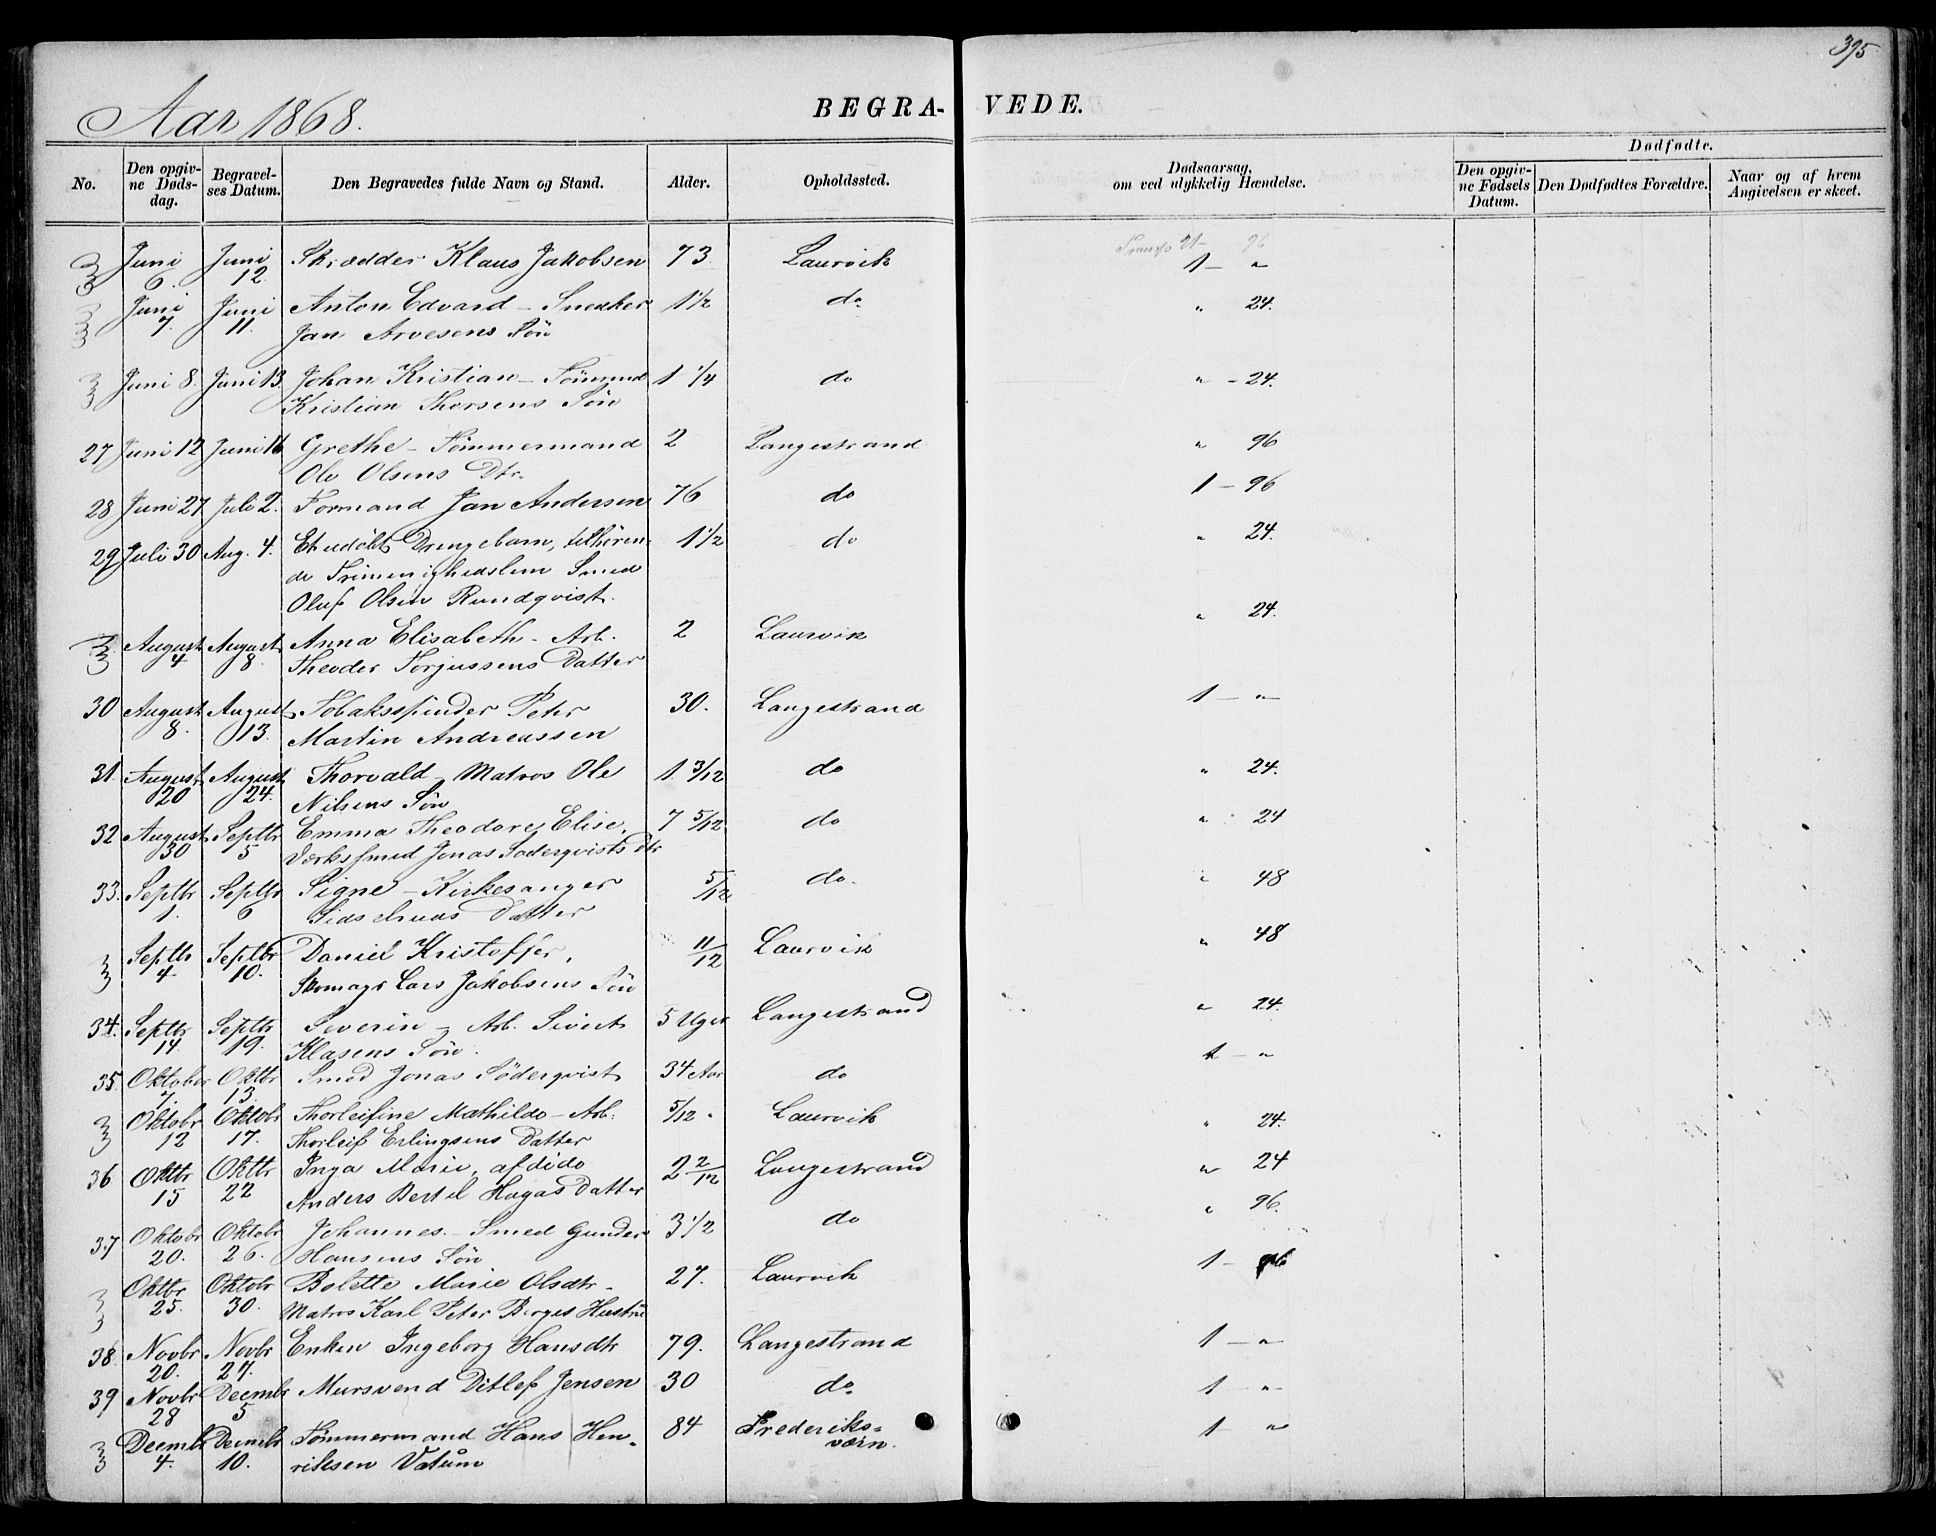 395
Aar 1868.
BEGRAVEDE.
No.
Den opgivne Dødsdag.
Begravelses Datum.
Den Begravedes fulde Navn og Stand.
Alder.
Opholdssted.
Dødsaarsag, om ved ulykkelig Hændelse.
Dødfødte.
Den opgivne Fødsels Datum.
Den Dødfødtes Forældre.
Naar og af hvem Angivelsen er skeet.
Juni 6. Juni 12. Skrædder Klaus Jakobsen 73 Laurvik 1 - "
Juni 7. Juni 11. Anton Edvard - Snedker 1 1/2 do " 24.
Jan Arvesens Søn
Juni 8. Juni 13. Johan Kristian - Tömmd 1 1/4 do " - 24.
Kristian Thorsens Søn
27 Juni 12 Juni 16 Grethe - Tömmermand 2 Langestrand " 96
Ole Olsens Dtr.
28 Juni 27 Juli 2. Formand Jan Andersen 76 do 1 - 96
29 Juli 30 Aug. 4. Et udöbt Drengebarn, tilhören- 1 1/2 do " 24.
de Frimenighedslem Smed
Oluf Olsen Rundqvist.
August 4 August 8. Anna Elisabeth - Arb. 2 Laurvik " 24.
Theodor Torjussens Datter
30 August 8. August 13. Tobaksspinder Peter 30. Langestrand 1 - "
Martin Andreassen
31. August 20 August 24. Thorvald - Matros Ole 1 3/12 do " 24.
Nilsens Søn
32 August 30 Septbr 5 Emma Theodore Elise, 7 5/12 do " 24
Værkssmed Jonas Söderqvists Dtr
33. Septbr 1. Septbr 6 Signe - Kirkesanger 5/12 do. " 48
Sidselruds Datter
Septbr 4. Septbr 10. Daniel Kristoffer, 11/12 Laurvik " 48
Skomagr Lars Jakobsens Søn
34. Septbr 14. Septbr 19. Severin - Arb. Sivert 5 Uger Langestrand " 24.
Klasens Søn.
35. Oktober 7 Oktbr 13. Smed Jonas Söderqvist 34 Aar do 1 - "
Oktobr 12 Oktobr 17. Thorleifine Mathilde - Arb: 5/12 " Laurvik " 24.
Thorleif Erlingsens Datter
36 Oktbr 15 Oktbr 22 Inga Marie, afdöde 2 2/12 Langestrand " 24
Anders Bertel Hagas Datter
37 Oktobr 20. Oktobr 26. Johannes - Smed Gunder 3 1/2 do " 96.
Hansens Søn
Oktbr 25. Oktobr 30. Bolette Marie Olsdtr - 27. Laurvik 1 - 96
Matros Karl Peter Berges Hustru
38 Novbr 20. Novbr 27. Enken Ingeborg Hansdtr 79. Langestrand 1 - "
39 Novbr 28 Decembr 5 Mursvend Ditlef Jensen 30 do. 1 - "
Decembr 4. Decmbr 10. Tömmermand Hans Hen- 84 Frederiks- 1 - "
riksen Vatum værn.